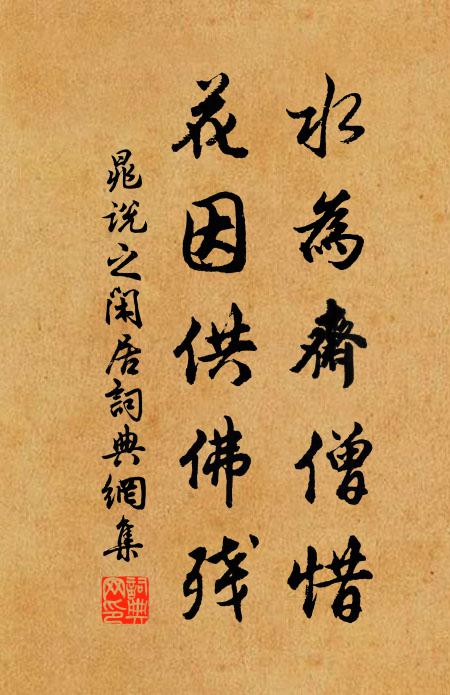 水為齋僧惜
花因供佛殘
晁說之閑居詞典網集
詞典網印